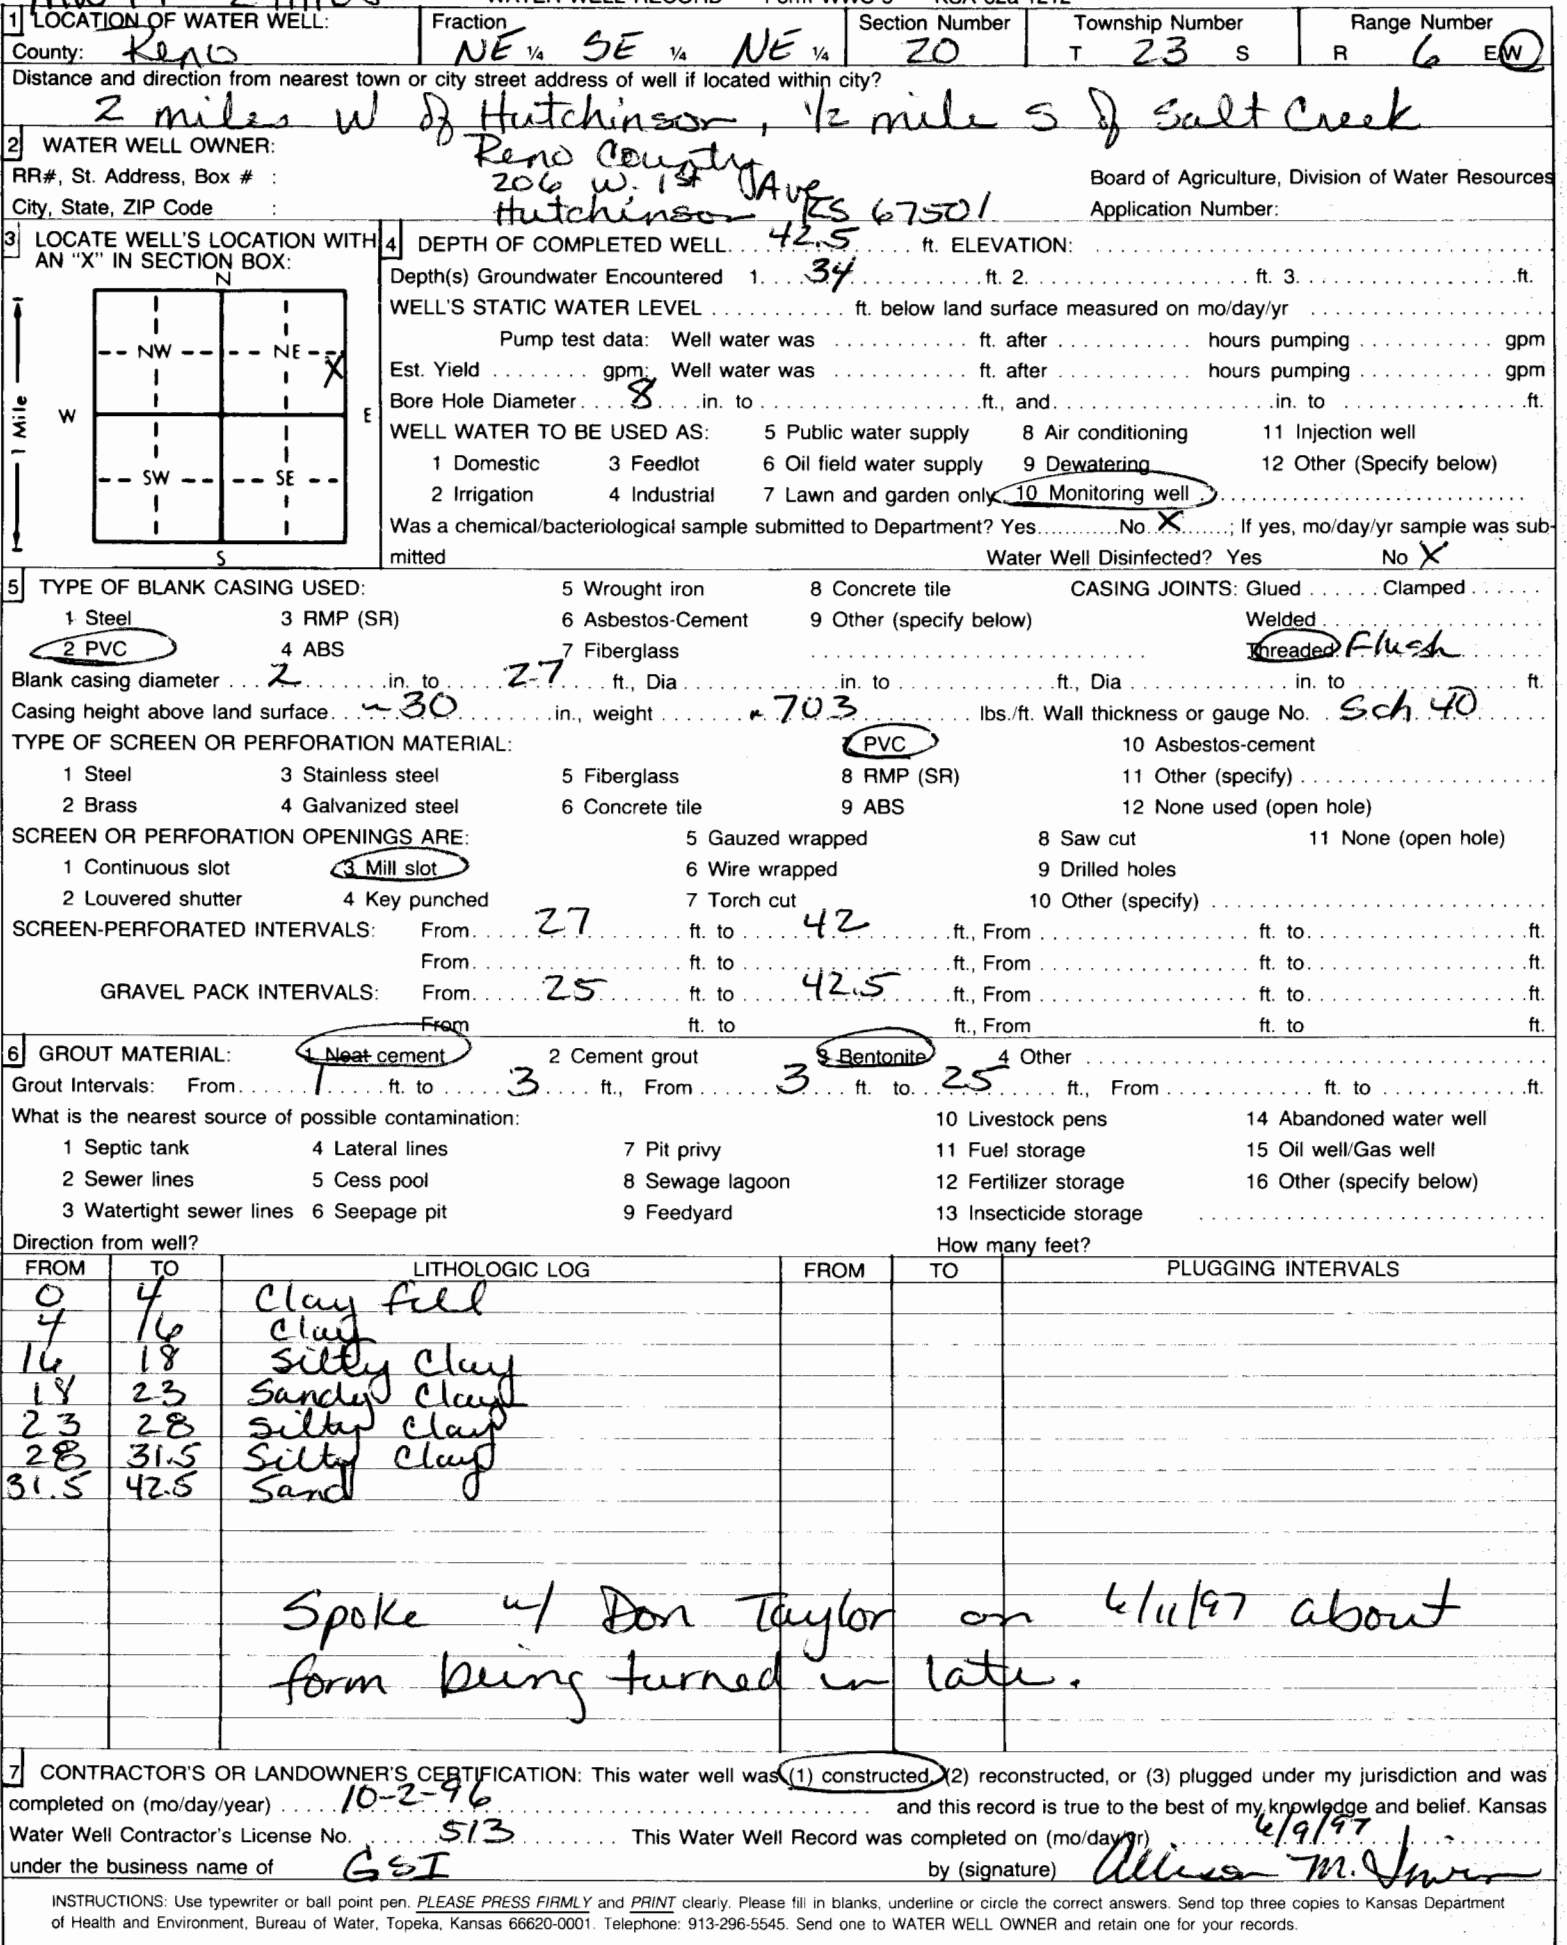 WATER WELL RECORD Form WWC-5 KSA 82a-1212
1 LOCATION OF WATER WELL: Fraction Section Number Township Number Range Number
County: Reno NE ¼ SE ¼ NE ¼ 20 T 23 S R 6 E/W
Distance and direction from nearest town or city street address of well if located within city?
2 miles W of Hutchinson, 1/2 mile S of Salt Creek
2 WATER WELL OWNER: Reno County
RR#, St. Address, Box # : 206 W. 1st Ave Board of Agriculture, Division of Water Resources
City, State, ZIP Code : Hutchinson KS 67501 Application Number:
3 LOCATE WELL'S LOCATION WITH AN "X" IN SECTION BOX:
N
NW NE X
W E
SW SE
S
1 Mile
4 DEPTH OF COMPLETED WELL 42.5 ft. ELEVATION:
Depth(s) Groundwater Encountered 1. 34 ft. 2. ft. 3. ft.
WELL'S STATIC WATER LEVEL ft. below land surface measured on mo/day/yr
Pump test data: Well water was ft. after hours pumping gpm
Est. Yield gpm; Well water was ft. after hours pumping gpm
Bore Hole Diameter 8 in. to ft., and in. to ft.
WELL WATER TO BE USED AS: 5 Public water supply 8 Air conditioning 11 Injection well
1 Domestic 3 Feedlot 6 Oil field water supply 9 Dewatering 12 Other (Specify below)
2 Irrigation 4 Industrial 7 Lawn and garden only 10 Monitoring well
Was a chemical/bacteriological sample submitted to Department? Yes No X ; If yes, mo/day/yr sample was sub-
mitted Water Well Disinfected? Yes No X
5 TYPE OF BLANK CASING USED: 5 Wrought iron 8 Concrete tile CASING JOINTS: Glued Clamped
1 Steel 3 RMP (SR) 6 Asbestos-Cement 9 Other (specify below) Welded
2 PVC 4 ABS 7 Fiberglass Threaded Flush
Blank casing diameter 2 in. to 27 ft., Dia in. to ft., Dia in. to ft.
Casing height above land surface ~30 in., weight .703 lbs./ft. Wall thickness or gauge No. Sch 40
TYPE OF SCREEN OR PERFORATION MATERIAL: 7 PVC 10 Asbestos-cement
1 Steel 3 Stainless steel 5 Fiberglass 8 RMP (SR) 11 Other (specify)
2 Brass 4 Galvanized steel 6 Concrete tile 9 ABS 12 None used (open hole)
SCREEN OR PERFORATION OPENINGS ARE: 5 Gauzed wrapped 8 Saw cut 11 None (open hole)
1 Continuous slot 3 Mill slot 6 Wire wrapped 9 Drilled holes
2 Louvered shutter 4 Key punched 7 Torch cut 10 Other (specify)
SCREEN-PERFORATED INTERVALS: From 27 ft. to 42 ft., From ft. to ft.
From ft. to ft., From ft. to ft.
GRAVEL PACK INTERVALS: From 25 ft. to 42.5 ft., From ft. to ft.
From ft. to ft., From ft. to ft.
6 GROUT MATERIAL: 1 Neat cement 2 Cement grout 3 Bentonite 4 Other
Grout Intervals: From 1 ft. to 3 ft., From 3 ft. to 25 ft., From ft. to ft.
What is the nearest source of possible contamination: 10 Livestock pens 14 Abandoned water well
1 Septic tank 4 Lateral lines 7 Pit privy 11 Fuel storage 15 Oil well/Gas well
2 Sewer lines 5 Cess pool 8 Sewage lagoon 12 Fertilizer storage 16 Other (specify below)
3 Watertight sewer lines 6 Seepage pit 9 Feedyard 13 Insecticide storage
Direction from well? How many feet?
FROM TO LITHOLOGIC LOG FROM TO PLUGGING INTERVALS
0 4 Clay fill
4 16 Clay
16 18 Silty Clay
18 23 Sandy Clay
23 28 Silty Clay
28 31.5 Silty Clay
31.5 42.5 Sand
Spoke w/ Don Taylor on 6/11/97 about
form being turned in late.
7 CONTRACTOR'S OR LANDOWNER'S CERTIFICATION: This water well was (1) constructed, (2) reconstructed, or (3) plugged under my jurisdiction and was
completed on (mo/day/year) 10-2-96 and this record is true to the best of my knowledge and belief. Kansas
Water Well Contractor's License No. 513 This Water Well Record was completed on (mo/day/yr) 6/9/97
under the business name of GSI by (signature) Allison M.
INSTRUCTIONS: Use typewriter or ball point pen. PLEASE PRESS FIRMLY and PRINT clearly. Please fill in blanks, underline or circle the correct answers. Send top three copies to Kansas Department
of Health and Environment, Bureau of Water, Topeka, Kansas 66620-0001. Telephone: 913-296-5545. Send one to WATER WELL OWNER and retain one for your records.